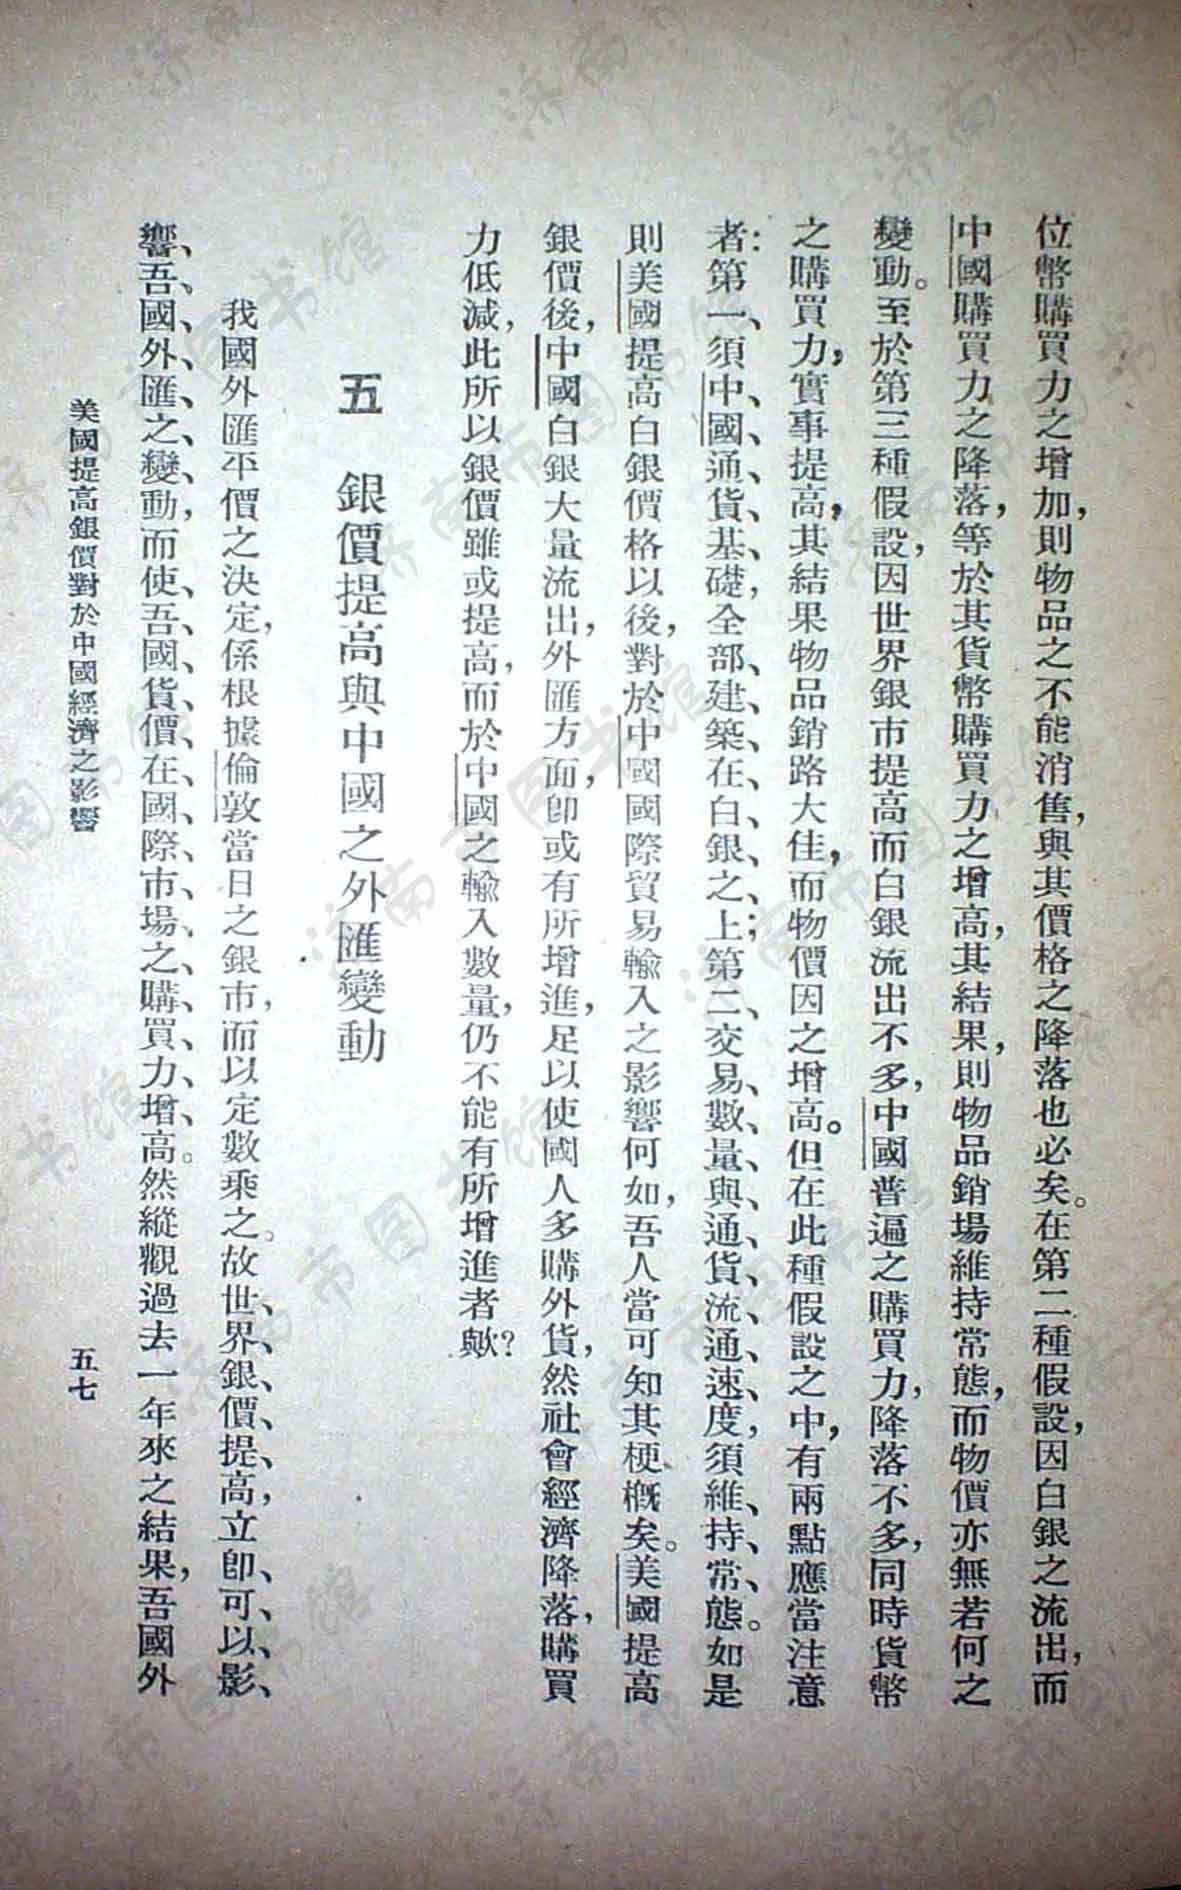 位幣購買力之增加,則物品之不能消售,與其價格之降落也必矣。在第二種假設,因白銀之流出,而
中國購買力之降落,等於其貨幣購買力之增高,其結果,則物品銷場維持常態,而物價亦無若何之
變動。至於第三種假設,因世界銀市提高而白銀流出不多,中國普遍之購買力,降落不多,同時貨幣
之購買力,實事提高,其結果物品銷路大佳,而物價因之增高。但在此種假設之中,有兩點應當注意
者:第一、須中國通貨基礎,全部建築在白銀之上;第二、交易數量與通貨流通速度,須維持常態。如是
則美國提高白銀價格以後,對於中國國際貿易輸入之影響何如,吾人當可知其梗概矣。美國提高
銀價後,中國白銀大量流出,外匯方面,卽或有所增進,足以使國人多購外貨,然社會經濟降落,購買
力低減,此所以銀價雖或提高,而於中國之輸入數量,仍不能有所增進者歟?
五 銀價提高與中國之外匯變動
我國外匯平價之決定,係根據倫敦當日之銀市,而以定數乘之。故世界銀價提高,立卽可以影
響吾國外匯之變動,而使吾國貨價在國際市場之購買力增高。然縱觀過去一年來之結果,吾國外
美國提高銀價對於中國經濟之影響 五七
济南市图书馆